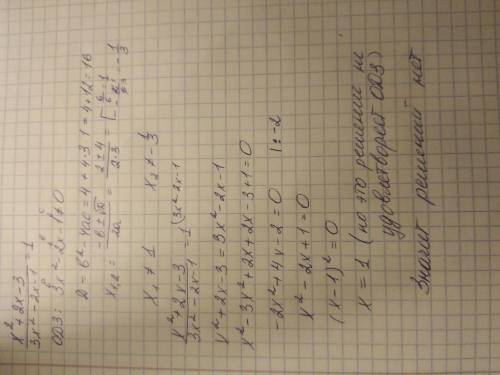 x²+2x-3 / 3x²-2x-1 = 1
ОДЗ: 3x²-2x-1≠0
D = b²-4ac = 4+4·3·1 = 4+12 = 16
x₁,₂ = b±√D / 2a = 2±4 / 2·3 = [ 6/6 = 1
-2/6 = -1/3
x₁ ≠ 1 x₂ ≠ -1/3
x²+2x-3 / 3x²-2x-1 = 1 (3x²-2x-1
x²+2x-3 = 3x²-2x-1
x²-3x²+2x+2x-3+1=0
-2x²+4x-2=0 |:-2
x²-2x+1=0
(x-1)²=0
x=1 (но это решение не
удовлетворяет ОДЗ)
Значит решений нет